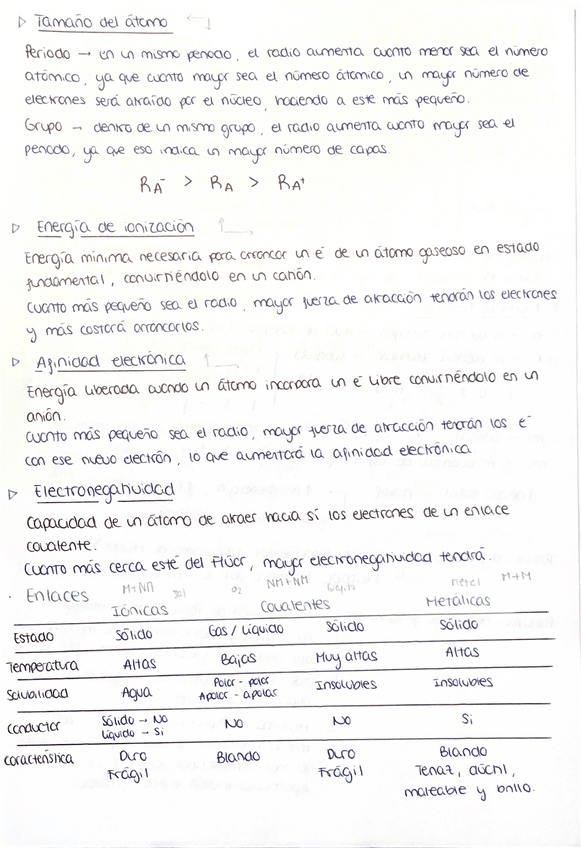 ▷ Tamaño del átomo
Periodo → en un mismo periodo, el radio aumenta cuanto menor sea el número
atómico, ya que cuanto mayor sea el número átomico, un mayor número de
electrones será atraído por el núcleo, haciendo a este más pequeño.
Grupo → dentro de un mismo grupo, el radio aumenta cuanto mayor sea el
periodo, ya que eso indica un mayor número de capas.
RA⁻ > RA > RA⁺
▷ Energía de ionización
Energía mínima necesaria para arrancar un e⁻ de un átomo gaseoso en estado
fundamental, convirtiéndolo en un catión.
Cuanto más pequeño sea el radio, mayor fuerza de atracción tendrán los electrones
y más costará arrancarlos.
▷ Afinidad electrónica
Energía liberada cuando un átomo incorpora un e⁻ libre convirtiéndolo en un
anión.
Cuanto más pequeño sea el radio, mayor fuerza de atracción tendrán los e⁻
con ese nuevo electrón, lo que aumentará la afinidad electrónica
▷ Electronegatividad
Capacidad de un átomo de atraer hacia sí los electrones de un enlace
covalente.
Cuanto más cerca esté del Flúor, mayor electronegatividad tendrá.
· Enlaces M+NM sal O₂ NM+NM Grafito metal M+M
Iónicas Covalentes Metálicas
Estado Sólido Gas / Líquido Sólido Sólido
Temperatura Altas Bajas Muy altas Altas
Solubilidad Agua Polar - polar Insolubles Insolubles
Apolar - apolar
Conductor Sólido → No No No Si
Líquido → Si
Característica Duro Blando Duro Blando
Frágil Frágil Tenaz, dúctil,
maleable y brillo.